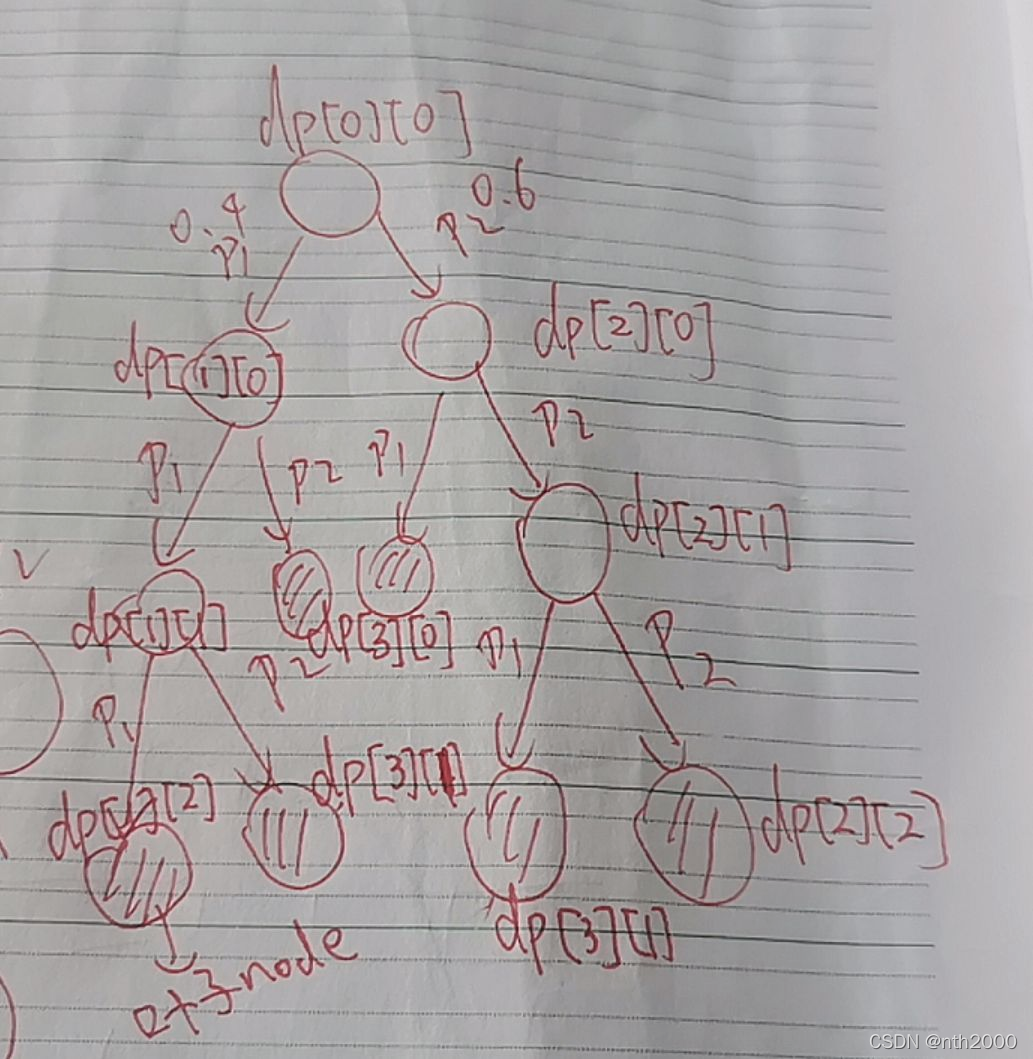 dp[0][0]
0.4
0.6
P1
P2
dp[1][0]
dp[2][0]
P1
P2
P1
P2
dp[2][1]
dp[1][1]
dp[3][0]
P1
P2
P1
P2
dp[1][2]
dp[3][1]
dp[2][2]
dp[3][1]
node
CSDN @nth2000